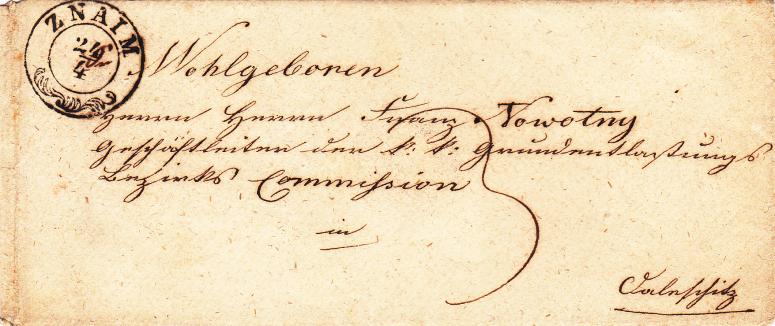 ZNAIM
24
4
Wohlgeboren
Herrn Herrn Franz Nowotny
Geschäftleiter der k: k: Grundentlastungs
Bezirks Commission
in
Daleschitz